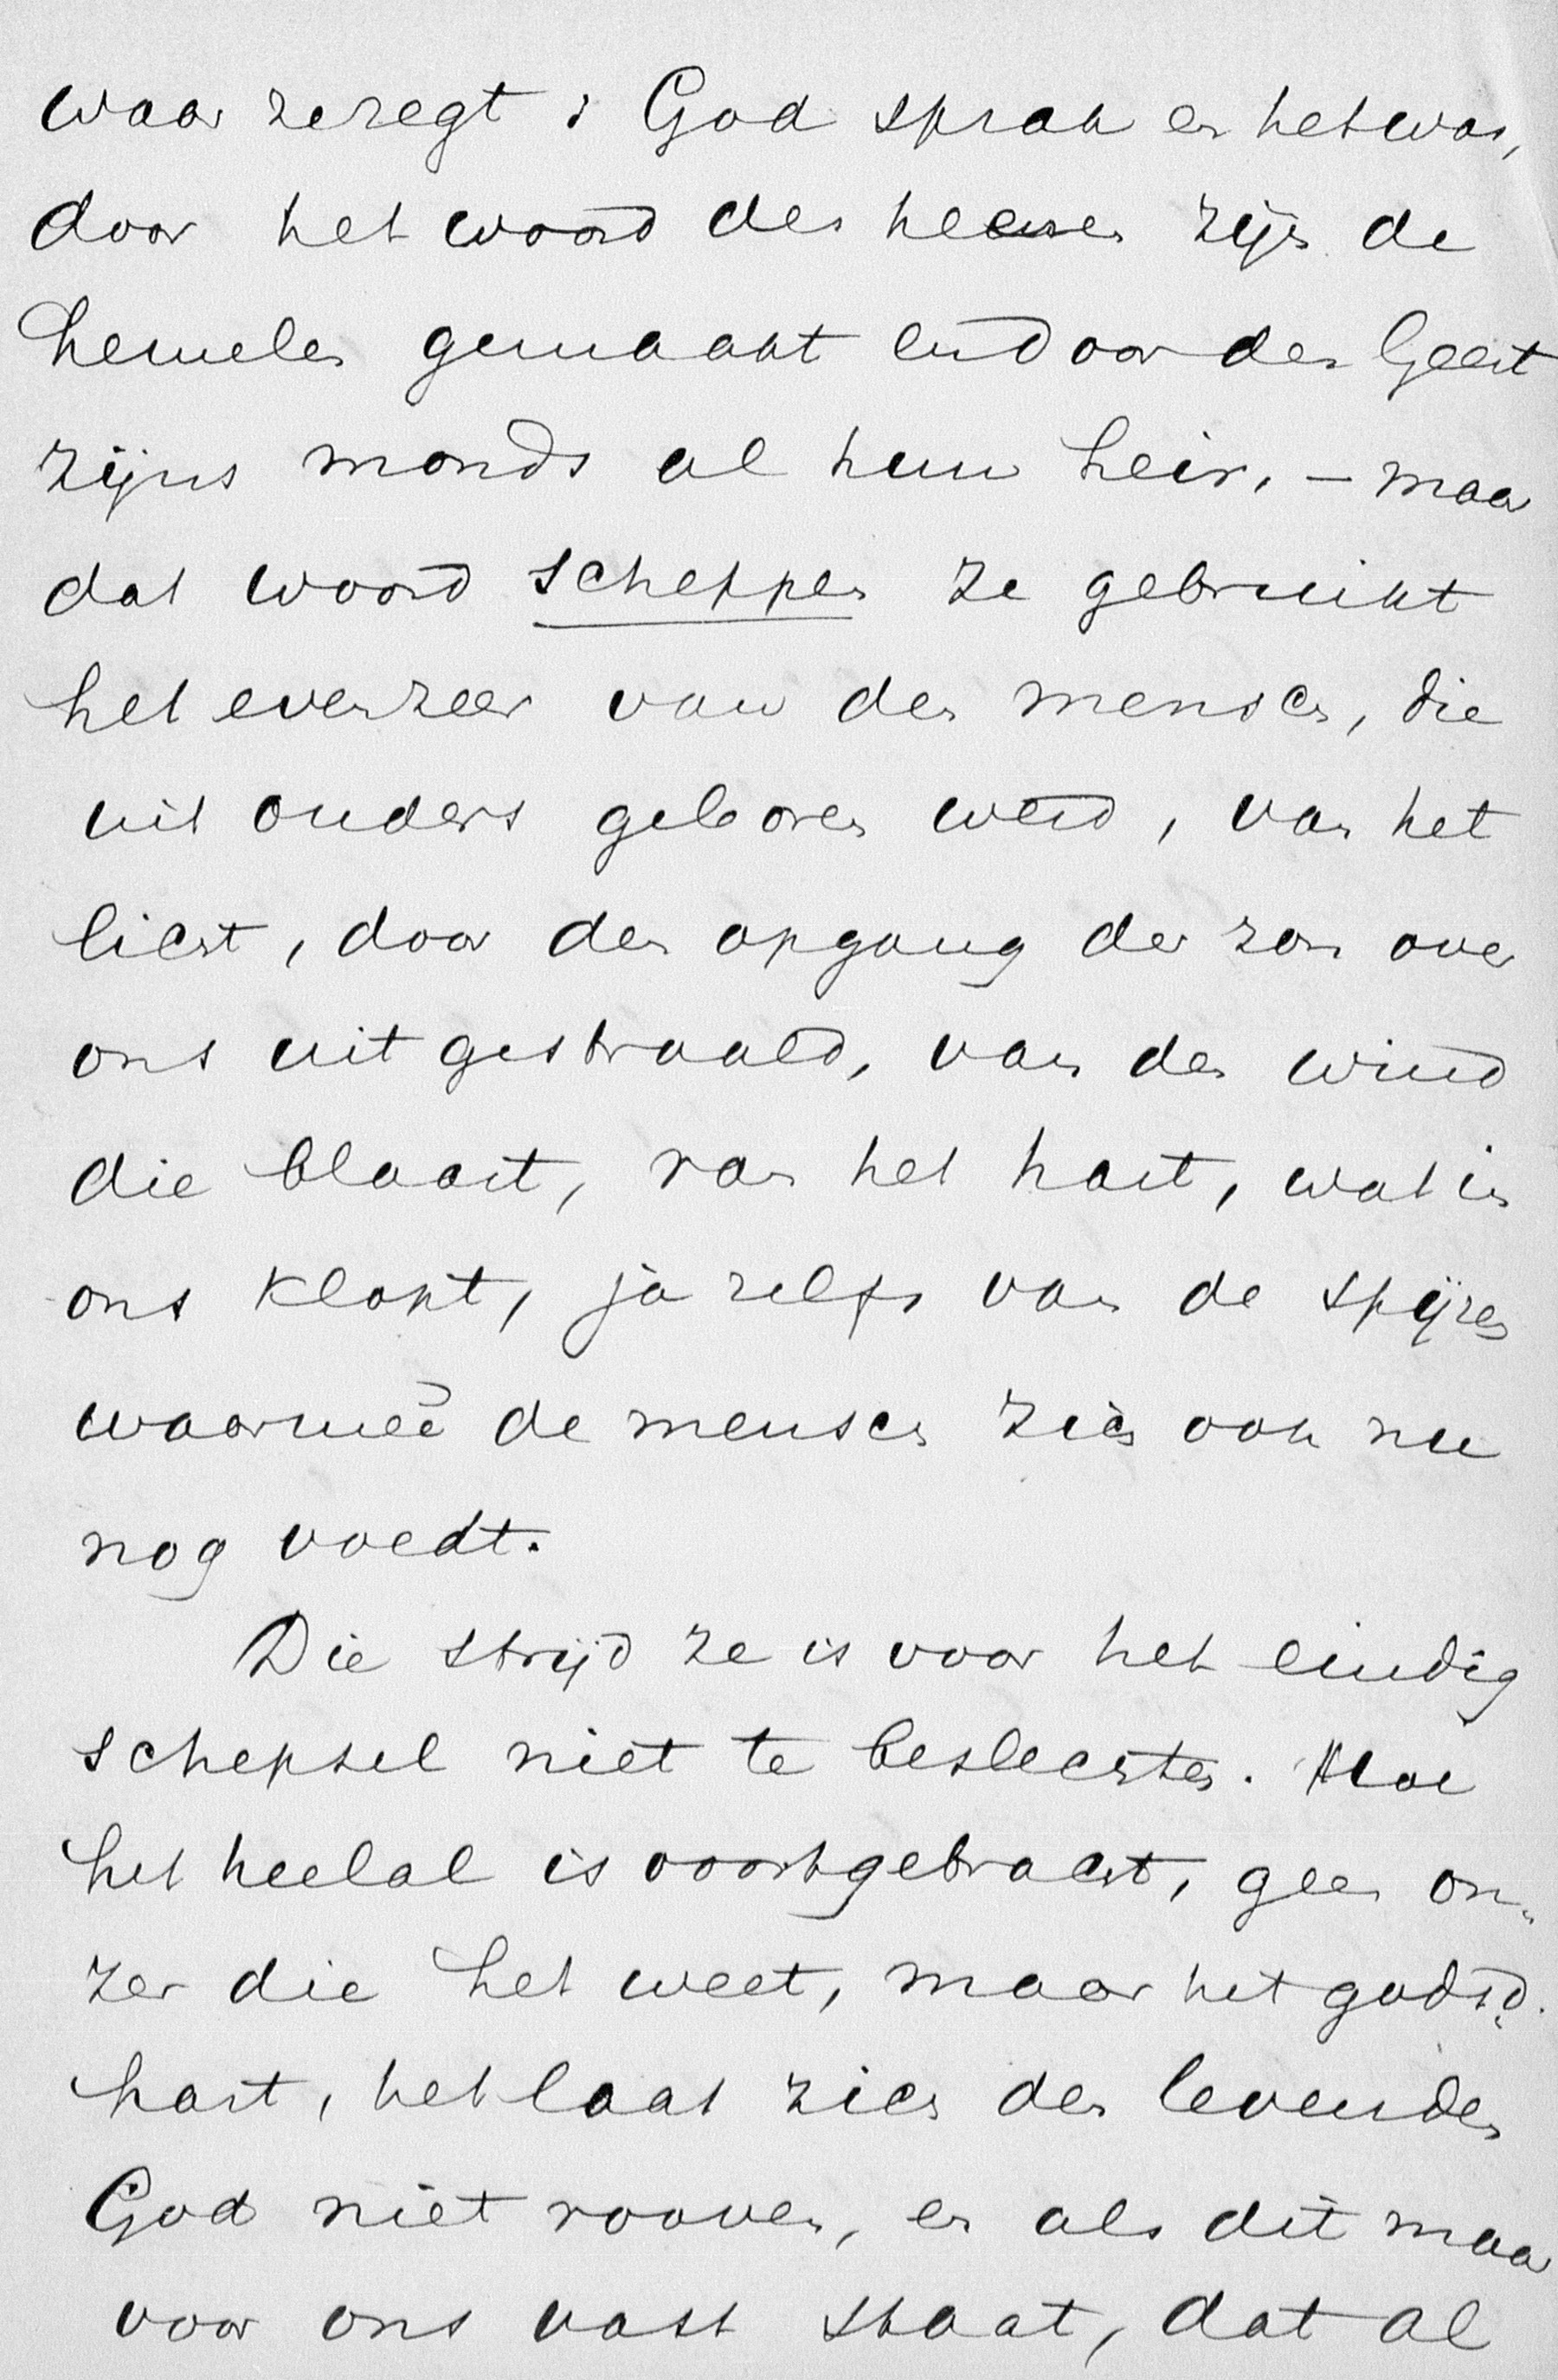 waar ze zegt: God sprak en het was,
door het woord des heeren zijn de
hemelen gemaakt en door den Geest
zijns monds al hun heir, – maar
dat woord scheppen ze gebruikt
het evenzeer van den mensch, die
uit ouders geboren werd, van het
licht, door den opgang der zon over
ons uitgestraald, van den wind
die blaast, van het hart, wat in
ons klopt, ja zelfs van de spijzen
waarmeê de mensch zich ook nu
nog voedt.
Die strijd ze is voor het eindig
schepsel niet te beslechten. Hoe
het heelal is voortgebracht, geen on„
zer die het weet, maar het godsd.
hart, het laat zich den levenden
God niet rooven, en als dit maar
voor ons vast staat, dat al